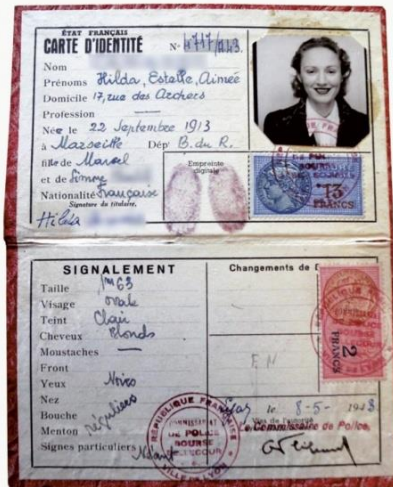 ÉTAT FRANÇAIS
CARTE D'IDENTITÉ
N° 4717/1243
Nom
Prénoms Hilda, Estelle, Aimée
Domicile 17, rue des Archers
Profession —
Née le 22 Septembre 1913
à Marseille Dép' B. du R.
fille de Marcel
et de Simone
Nationalité Française
Signature du titulaire,
Hilda
Empreinte
digitale
13
FRANCS
SIGNALEMENT
Changements de
Taille 1m63
Visage ovale
Teint Clair
Cheveux Blonds
Moustaches —
Front
Yeux Noirs
Nez
Bouche
Menton réguliers
Signes particuliers
2
FRANCS
le 8-5-
Le Commissaire de Police,
RÉPUBLIQUE FRANÇAISE
COMMISSARIAT
DE POLICE
BOURSE
BELLECOUR
VILLE DE LYON